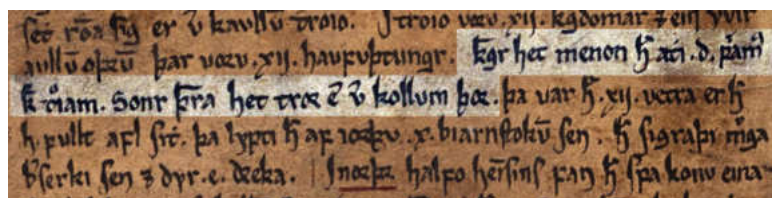 ſet róa ſig er v̄ kǫllū troio. I troio voru .xij. kgdomar ⁊ ein yvir
aullū oꝛꝛū þar voꝛu .xij. haufuþtungr. kgr het menon h̄ ati .d. p̄am̄
k tͦiam. Sonr þr̄ra het troꝛ ē v̄ kollum þoꝛ. þa var h̄ .xij. vetra er h̄
h. fullt afl ſit. þa lypti h̄ af ioꝛþu .x. biarnſtokū ſen. h̄ ſigraþi m̄ga
b̄ſerki ſen ⁊ dyr .e. dꝛeka. I noꝛþꝛ halfo heīſins fan h̄ ſpa konu eina